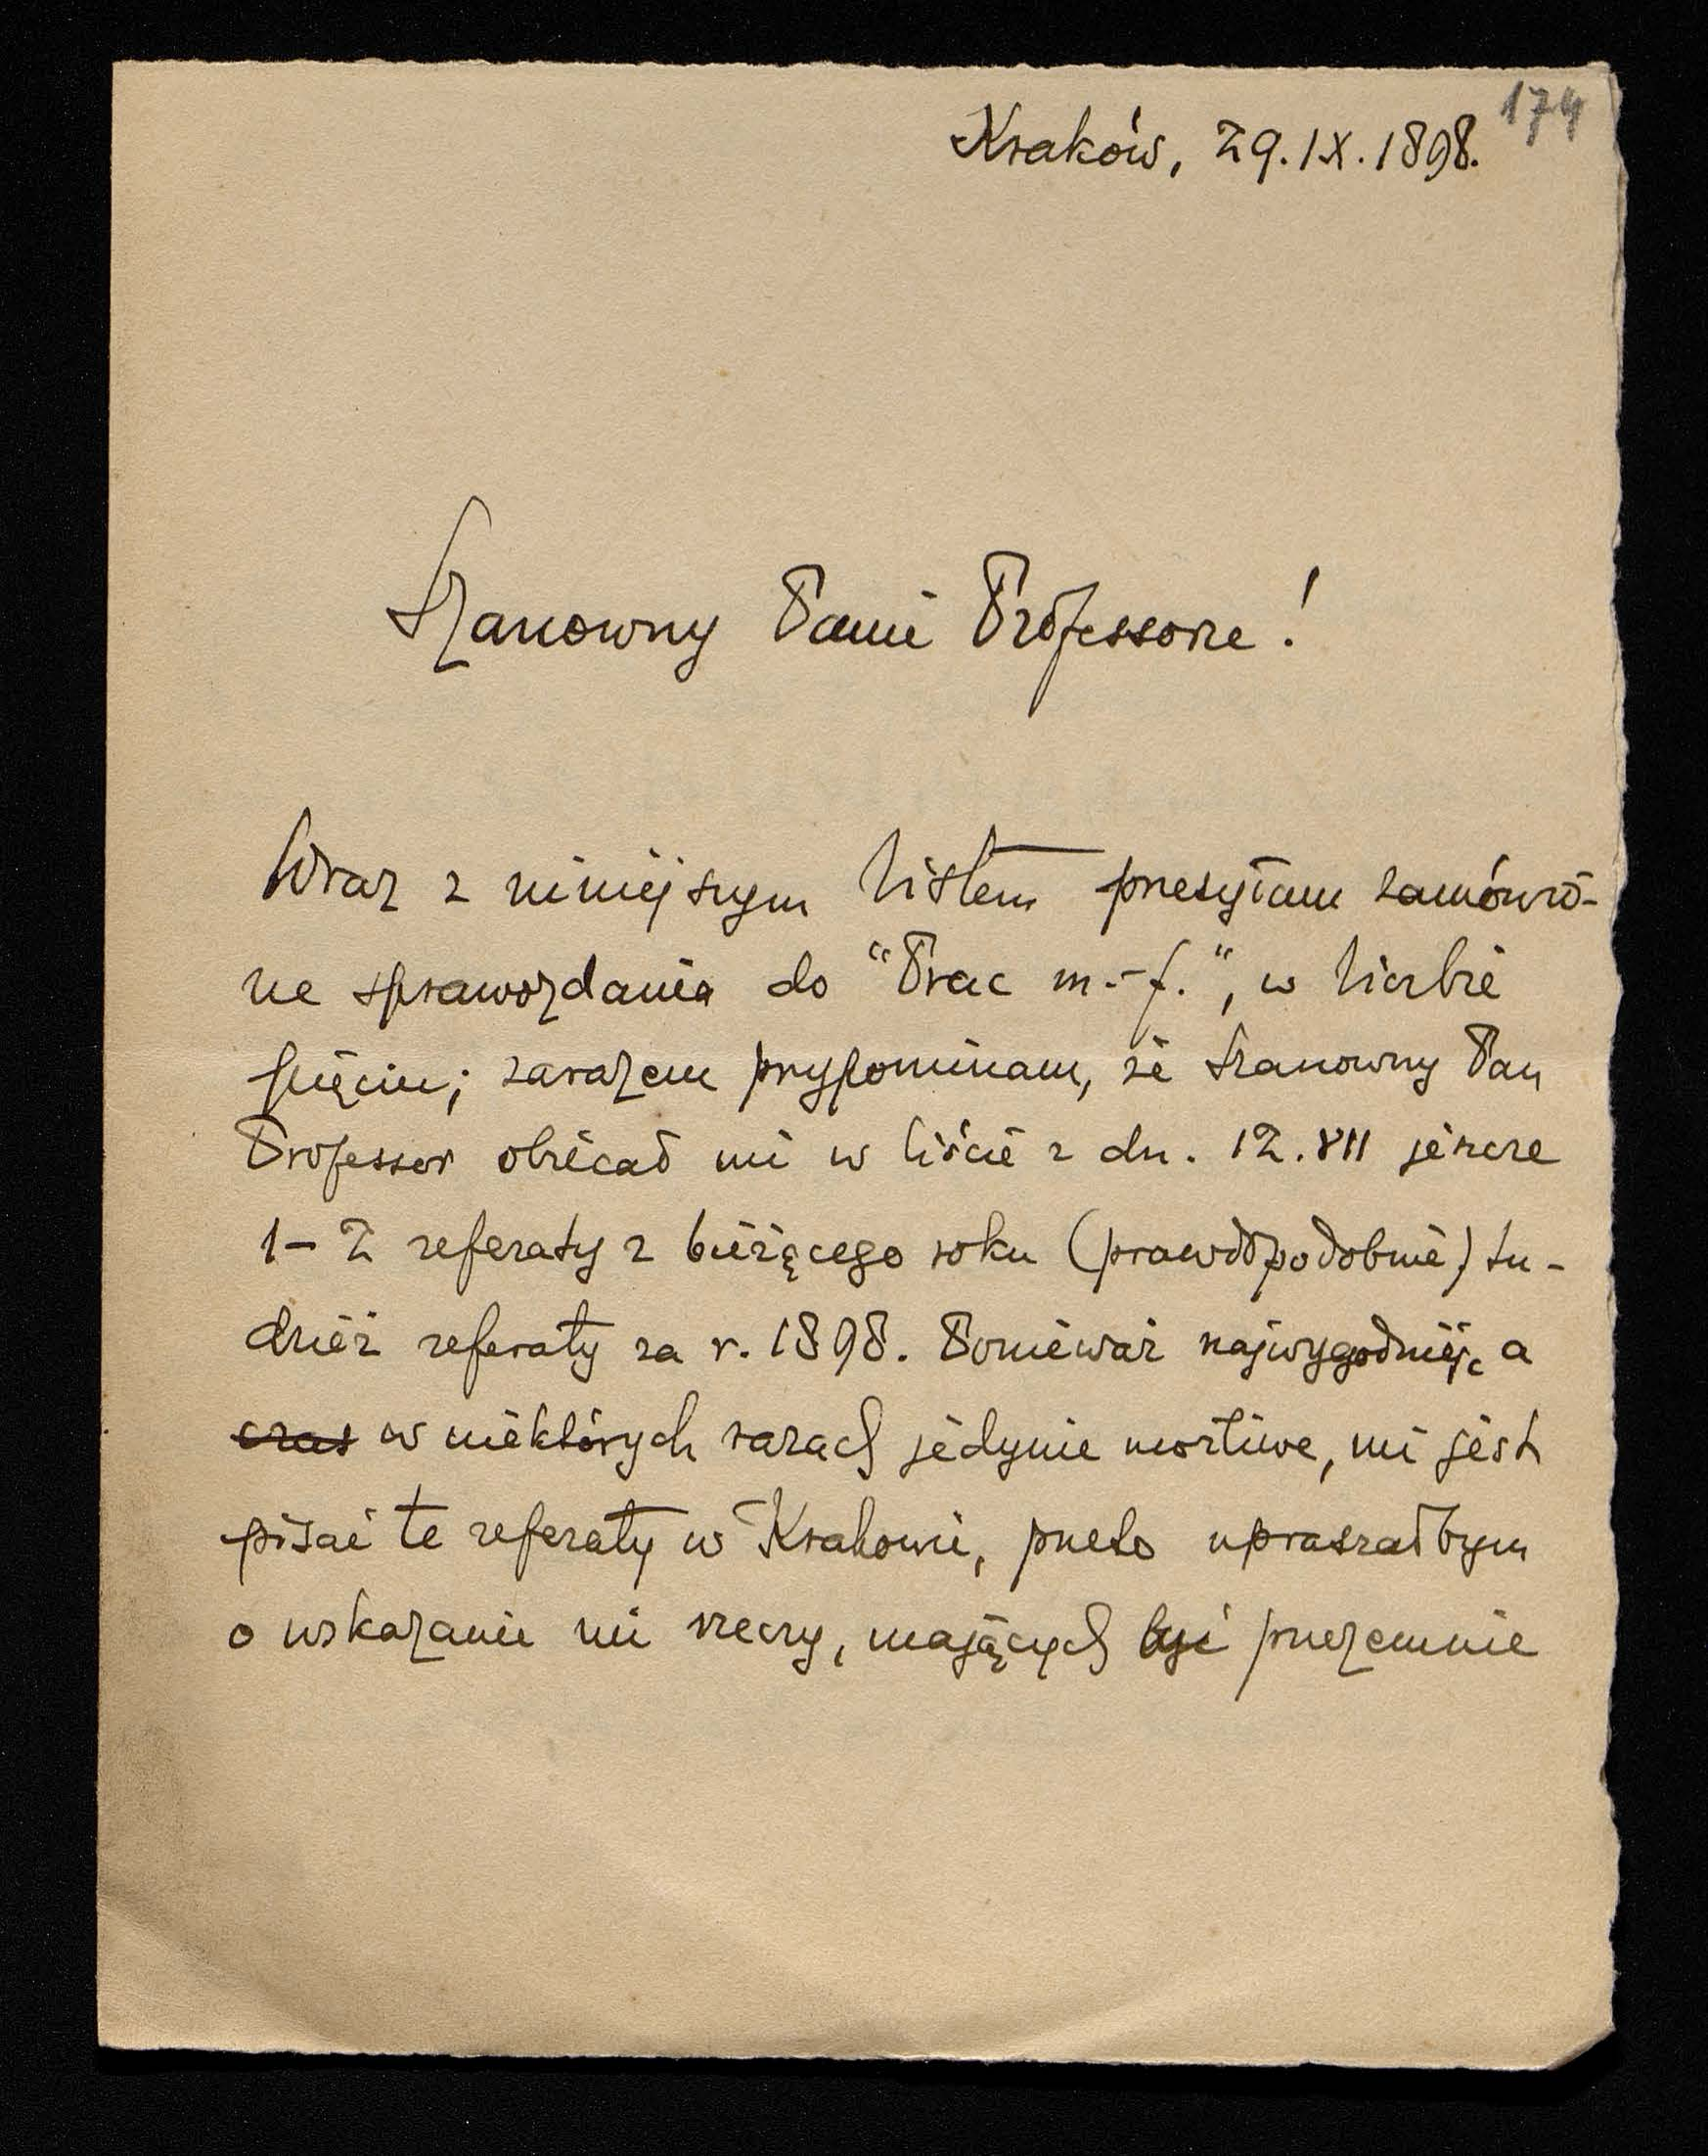 174
Kraków, 29.IX.1898.
Szanowny Panie Professorze!
Wraz z niniejszym listem przesyłam zamówio-
ne sprawozdania do "Prac m.-f.", w liczbie
pięciu; zarazem przypominam, że Szanowny Pan
Professor obiecał mi w liście z dn. 12.VII jeszcze
1-2 referaty z bieżącego roku (prawdopodobnie) tu-
dzież referaty za r. 1898. Ponieważ najwygodniej, a
czas w niektórych razach jedynie możliwe, mi jest
pisać te referaty w Krakowie, przeto upraszałbym
o wskazanie mi rzeczy, mających być przezemnie